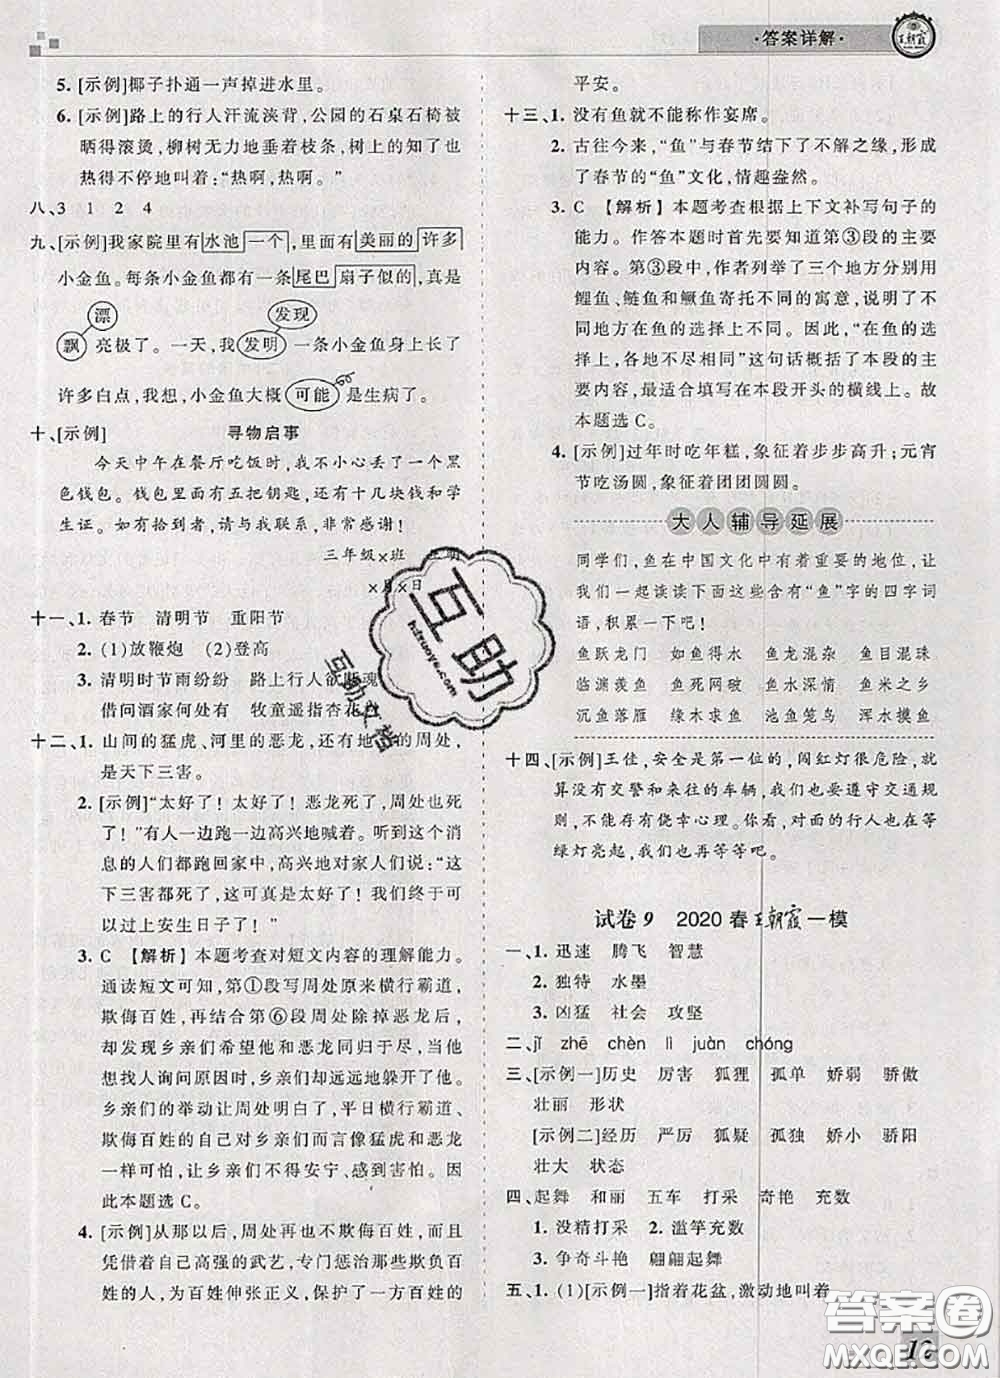 ·答案详解·
王朝霞
5. [示例]椰子扑通一声掉进水里。
6. [示例]路上的行人汗流浃背,公园的石桌石椅被
晒得滚烫,柳树无力地垂着枝条,树上的知了也
热得不停地叫着:“热啊,热啊。”
八、3 1 2 4
九、[示例]我家院里有水池一个,里面有美丽的许多
小金鱼。每条小金鱼都有一条尾巴扇子似的,真是
漂 发现
飘亮极了。一天,我发明一条小金鱼身上长了
许多白点,我想,小金鱼大概可能是生病了。
十、[示例] 寻物启事
今天中午在餐厅吃饭时,我不小心丢了一个黑
色钱包。钱包里面有五把钥匙,还有十几块钱和学
生证。如有拾到者,请与我联系,非常感谢!
三年级×班 王明
×月×日
十一、1. 春节 清明节 重阳节
2. (1)放鞭炮 (2)登高
3. 清明时节雨纷纷 路上行人欲断魂
借问酒家何处有 牧童遥指杏花村
十二、1. 山间的猛虎、河里的恶龙,还有地上的周处,
是天下三害。
2. [示例]“太好了!太好了!恶龙死了,周处也死
了!”有人一边跑一边高兴地喊着。听到这个消
息的人们都跑回家中,高兴地对家人们说:“这
下三害都死了,这可真是太好了!我们终于可
以过上安生日子了!”
3. C 【解析】本题考查对短文内容的理解能力。
通读短文可知,第①段写周处原来横行霸道,
欺侮百姓,再结合第⑥段周处除掉恶龙后,
却发现乡亲们希望他和恶龙同归于尽,当他
询问原因时,乡亲们却远远地躲开了。由此
可知,乡亲们的举动让周处知道,平日横行霸道、
欺侮百姓的自己对乡亲们而言像猛虎和恶龙
一样可怕,让乡亲们不得安宁、感到害怕。因
此本题选C。
4. [示例]从那以后,周处再也不欺侮百姓,而且
凭借着自己高强的武艺,专门惩治那些欺负百
姓的人,为百姓伸张正义,保护了一方百姓的
平安。
十三、1. 没有鱼就不能称作宴席。
2. 古往今来,“鱼”与春节结下了不解之缘,形成
了春节的“鱼”文化,情趣盎然。
3. C 【解析】本题考查根据上下文补写句子的
能力。作答本题时首先要知道第③段的主要
内容。第③段中,作者列举了三个地方分别用
鲤鱼、鲢鱼和鳜鱼寄托不同的寓意,说明了不
同地方在鱼的选择上不同。因此,“在鱼的选
择上,各地不尽相同”这句话概括了本段的主要
内容,最适合填写在本段开头的横线上。故
本题选C。
4. [示例]过年时吃年糕,象征着步步高升;元宵
节吃汤圆,象征着团团圆圆。
大人辅导延展
同学们,鱼在中国文化中有着重要的地位,让
我们一起读读下面的这些含有“鱼”字的四字词
语,积累一下吧!
鱼跃龙门 如鱼得水 鱼龙混杂 鱼目混珠
临渊羡鱼 鱼死网破 鱼水深情 鱼米之乡
沉鱼落雁 缘木求鱼 池鱼笼鸟 浑水摸鱼
十四、[示例]王佳,安全是第一位的,闯红灯很危险,就
算没有交警和来往的车辆,我们也要遵守交通规
则,不能存有侥幸心理。你看,对面的行人也在等
绿灯亮起,我们也再等等吧。
试卷9 2020春王朝霞一模
一、1. 迅速 腾飞 智慧
2. 独特 水墨
3. 凶猛 社会 攻坚
二、jī zhē chèn lì juàn chóng
三、[示例一]历史 厉害 狐狸 孤单 娇弱 骄傲
壮丽 形状
[示例二]经历 严厉 狐疑 孤独 娇小 骄阳
壮大 状态
四、起舞 和丽 五车 打采 奇艳 充数
1. 没精打采 2. 滥竽充数
3. 争奇斗艳 翩翩起舞
五、1. (1)[示例一]指着花盆,激动地叫着
12
互助
互助文档
答案圈
MXQE.COM